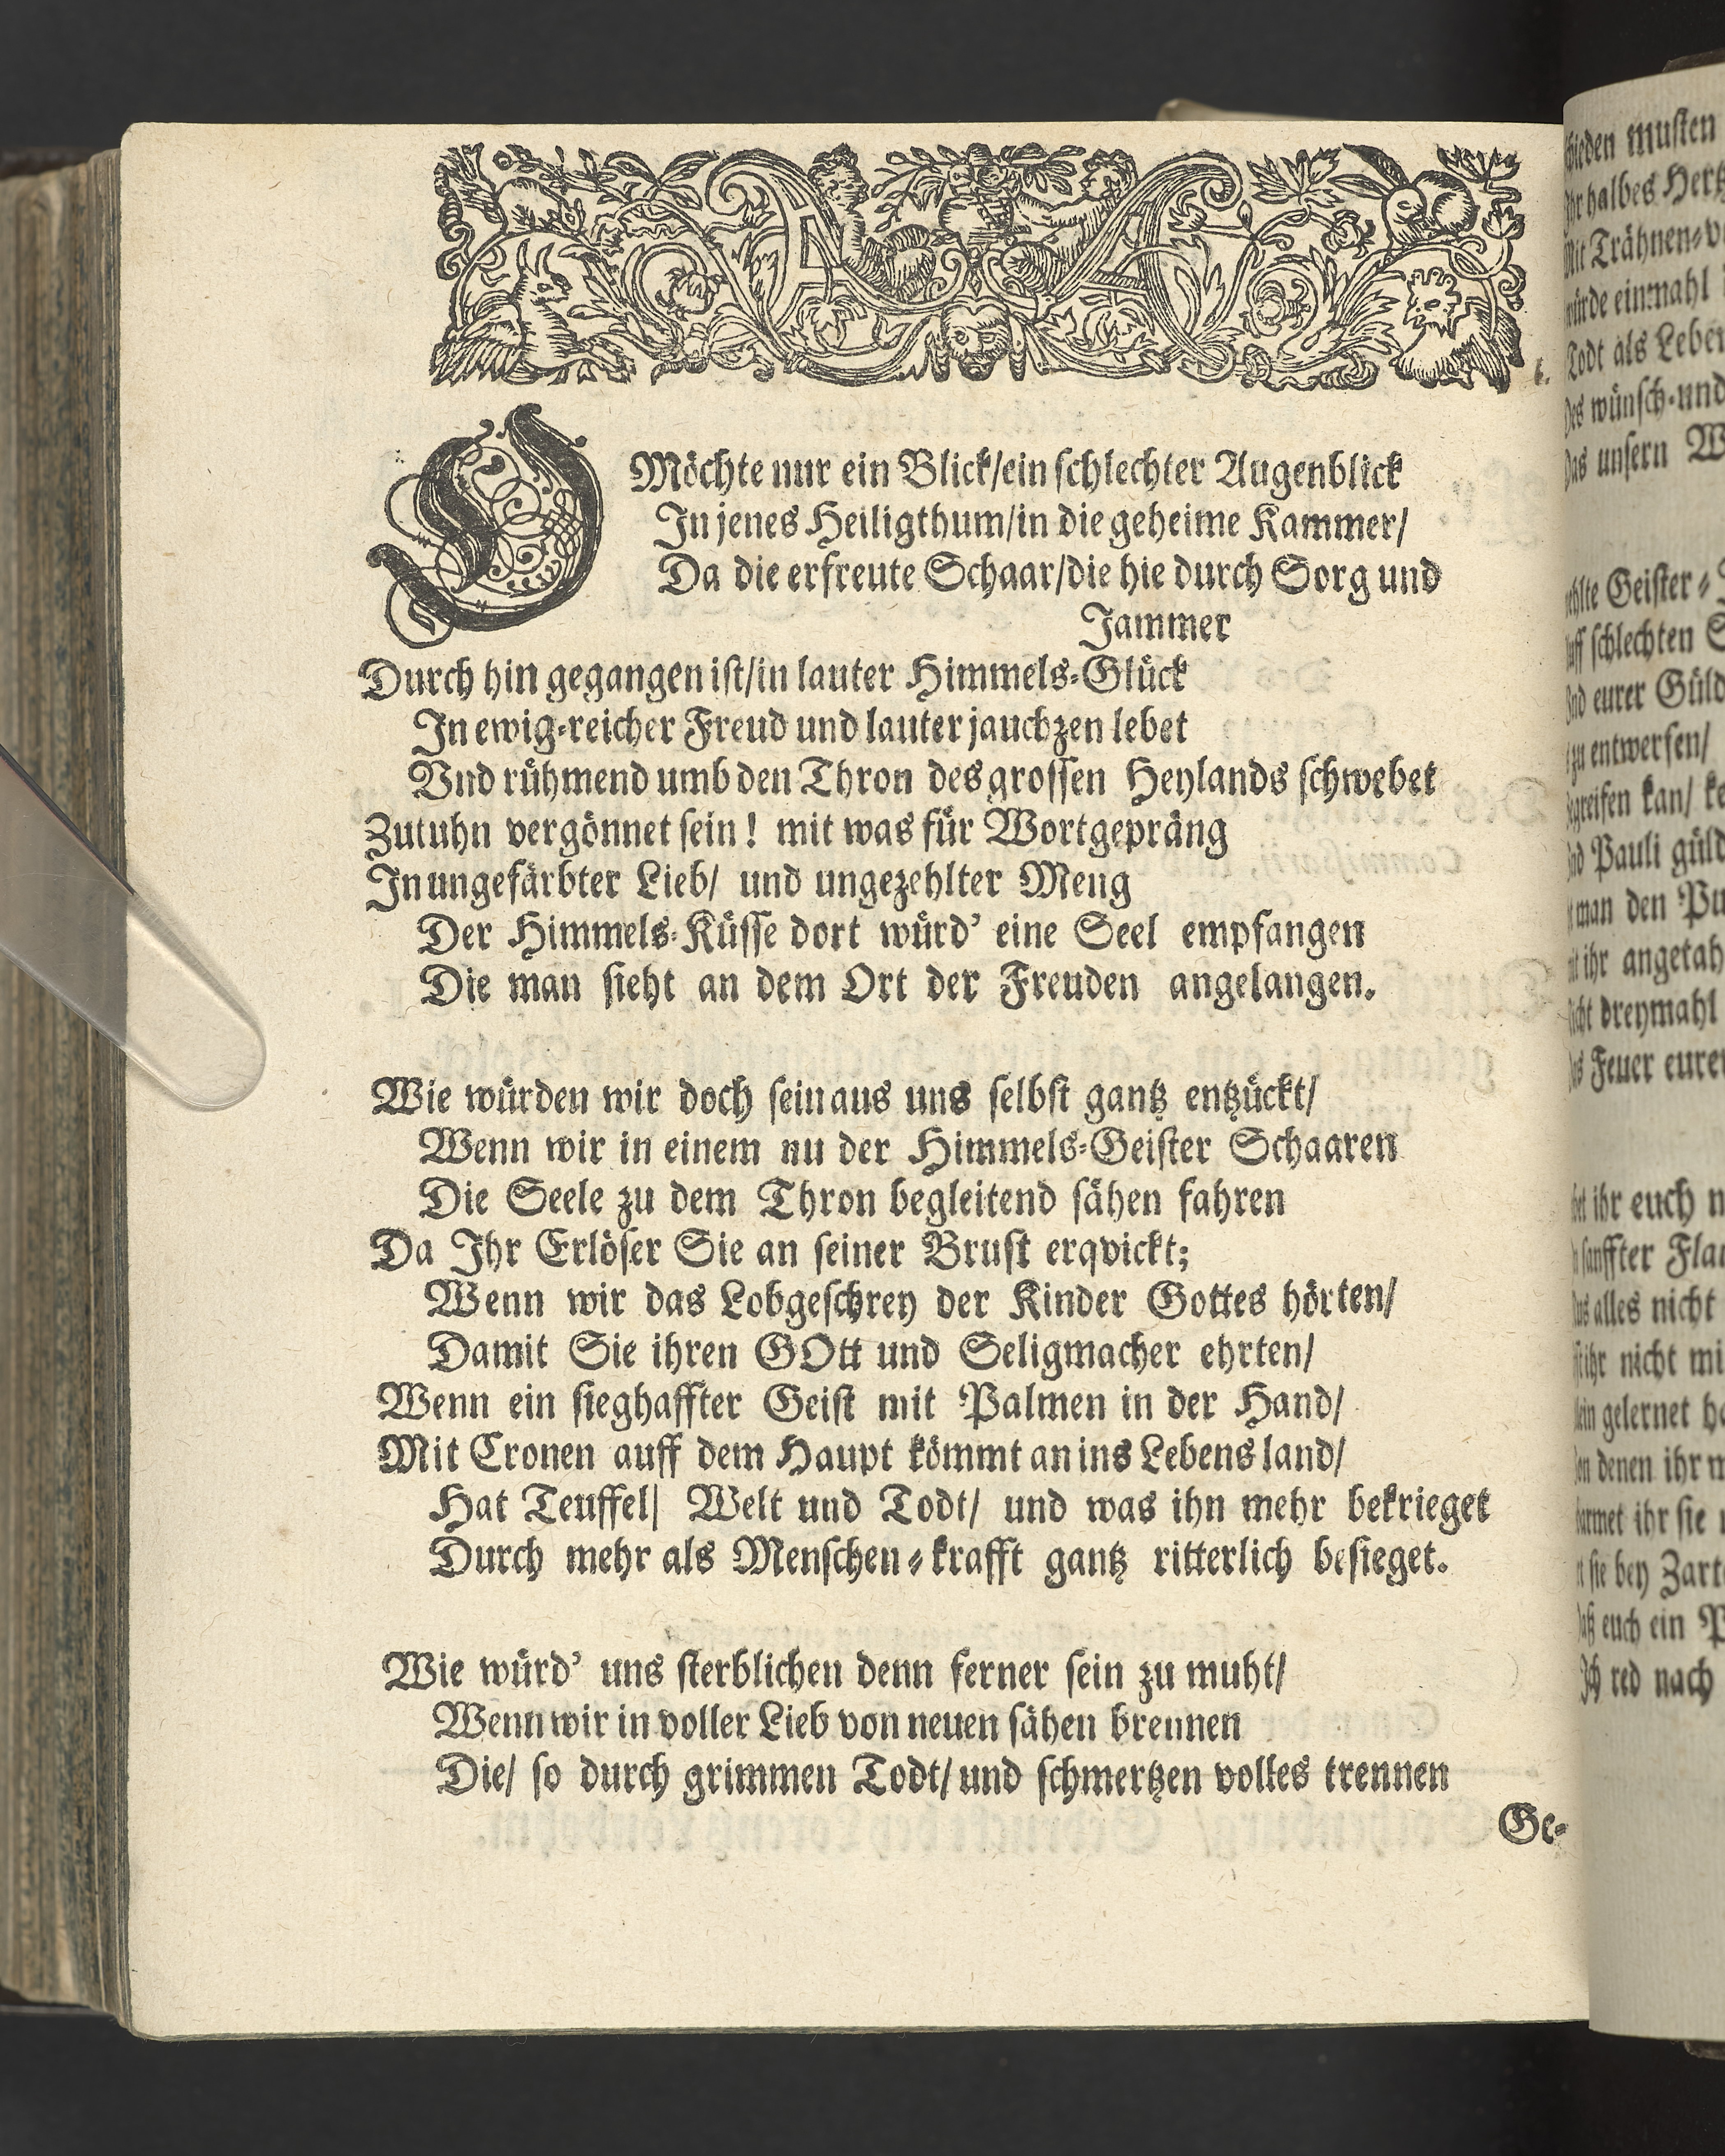 O Möchte nur ein Blick/ein schlechter Augenblick
In jenes Heiligthum/in die geheime Kammer/
Da die erfreute Schaar/die hie durch Sorg und
Jammer
Durch hin gegangen ist/in lauter Himmels-Glück
In ewig-reicher Freud und lauter jauchzen lebet
Vnd rühmend umb den Thron des grossen Heylands schwebet
Zutuhn vergönnet sein! mit was für Wortgepräng
In ungefärbter Lieb/ und ungezehlter Meng
Der Himmels-Küsse dort würd' eine Seel empfangen
Die man sieht an dem Ort der Freuden angelangen.
Wie würden wir doch sein aus uns selbst gantz entzückt/
Wenn wir in einem nu der Himmels-Geister Schaaren
Die Seele zu dem Thron begleitend sähen fahren
Da Ihr Erlöser Sie an seiner Brust erqvickt;
Wenn wir das Lobgeschrey der Kinder Gottes hörten/
Damit Sie ihren GOtt und Seligmacher ehrten/
Wenn ein sieghaffter Geist mit Palmen in der Hand/
Mit Cronen auff dem Haupt kömmt an ins Lebens land/
Hat Teuffel/ Welt und Todt/ und was ihn mehr bekrieget
Durch mehr als Menschen-krafft gantz ritterlich besieget.
Wie würd' uns sterblichen denn ferner sein zu muht/
Wenn wir in voller Lieb von neuen sähen brennen
Die/ so durch grimmen Todt/ und schmertzen volles trennen
Ge-
musten
halbes
Trähnen-
einmahl
Todt als Leben
wünsch-und
unsern
Geister-
schlechten
eurer
zu entwerfen/
kan/
Pauli
man den
ihr
dreymahl
Feuer
ihr euch
sanffter
alles nicht
ihr nicht
gelernet
denen ihr
ihr sie
sie bey
euch ein
Ich red nach